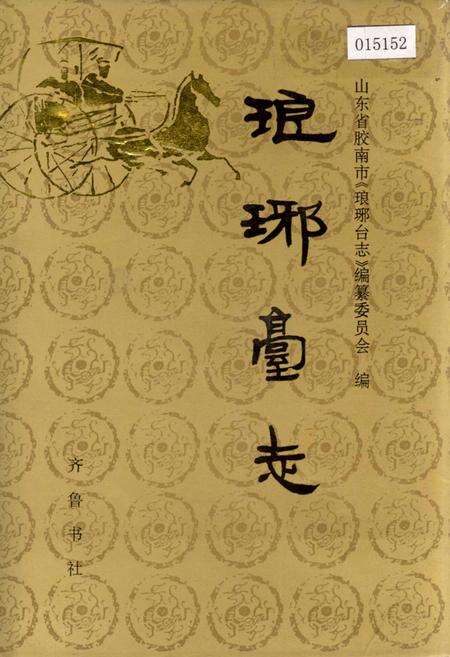 015152
山东省胶南市《琅琊台志》编纂委员会 编
琅琊臺志
齐鲁书社